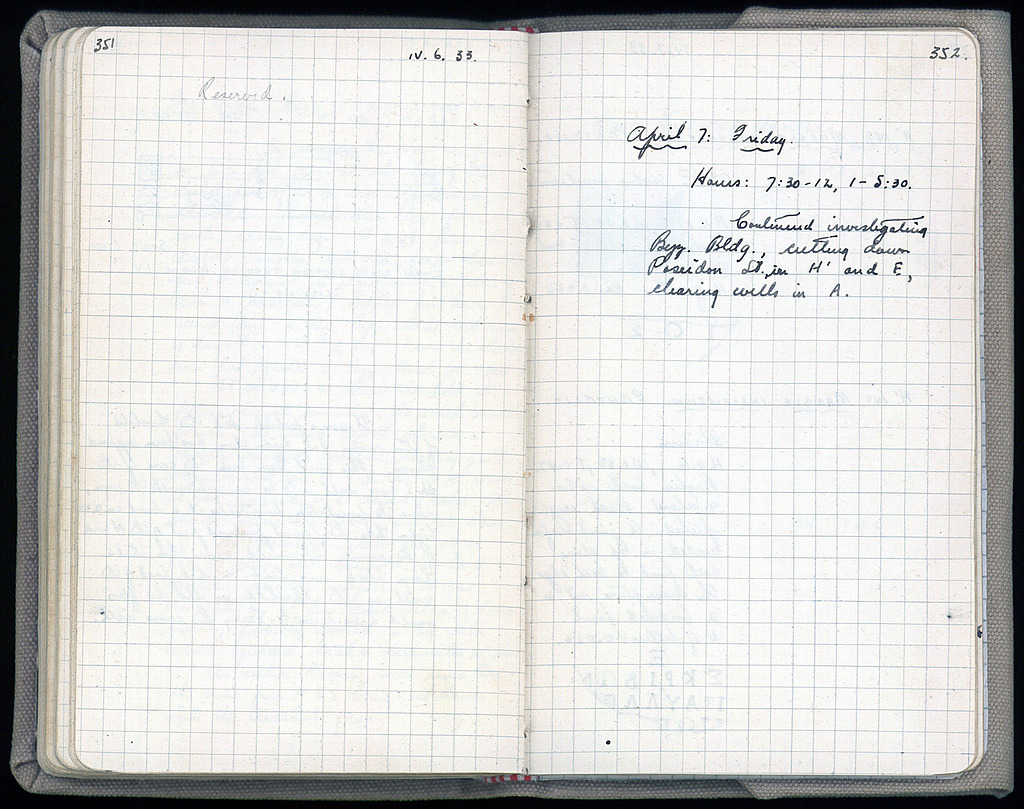 351
IV. 6. 33.
Reserved.
352.
April 7: Friday.
Hours: 7:30-12, 1-5:30.
Continued investigating
Byz. Bldg., cutting down
Poseidon St., in H' and E,
clearing wells in A.